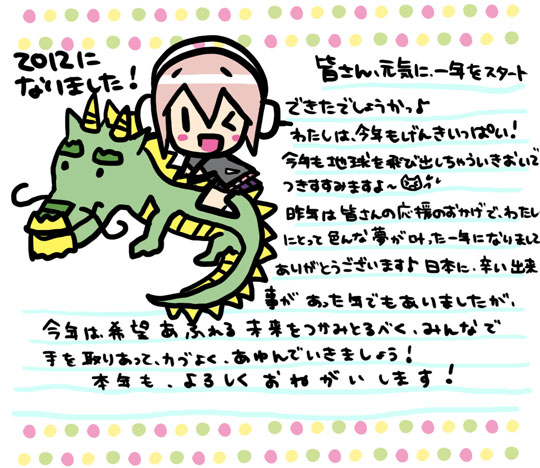 2012に
なりました！
皆さん、元気に、一年をスタート
できたでしょうかっ♪
わたしは、今年もげんきいっぱい！
今年も地球を飛び出しちゃういきおいで
つきすすみますよ〜
昨年は皆さんの応援のおかげで、わたし
にとって色んな夢が叶った一年になりまして
ありがとうございます♪日本に、辛い出来
事があった年でもありましたが、
今年は、希望あふれる未来をつかみとるべく、みんなで
手を取りあって、力づよく、あゆんでいきましょう！
本年も、よろしくおねがいします！